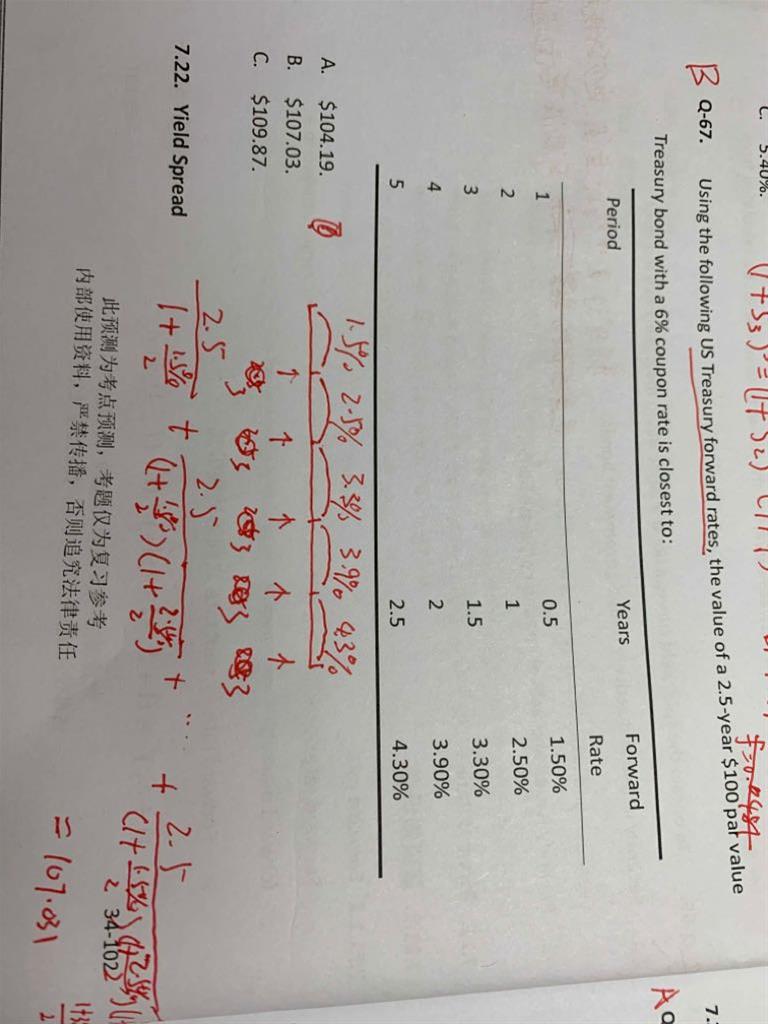 C. 5.40%.
B Q-67. Using the following US Treasury forward rates, the value of a 2.5-year $100 par value
Treasury bond with a 6% coupon rate is closest to:
Period Years Forward
Rate
1 0.5 1.50%
2 1 2.50%
3 1.5 3.30%
4 2 3.90%
5 2.5 4.30%
1.5% 2.5% 3.3% 3.9% 4.3%
A. $104.19.
B. $107.03.
C. $109.87.
3 3 3 3 3
7.22. Yield Spread
2.5 / (1+ 1.5%/2) + 2.5 / (1+ 1.5%/2)(1+ 2.5%/2) + ... + 2.5
= 107.031
此预测为考点预测，考题仅为复习参考
内部使用资料，严禁传播，否则追究法律责任
34-102
A